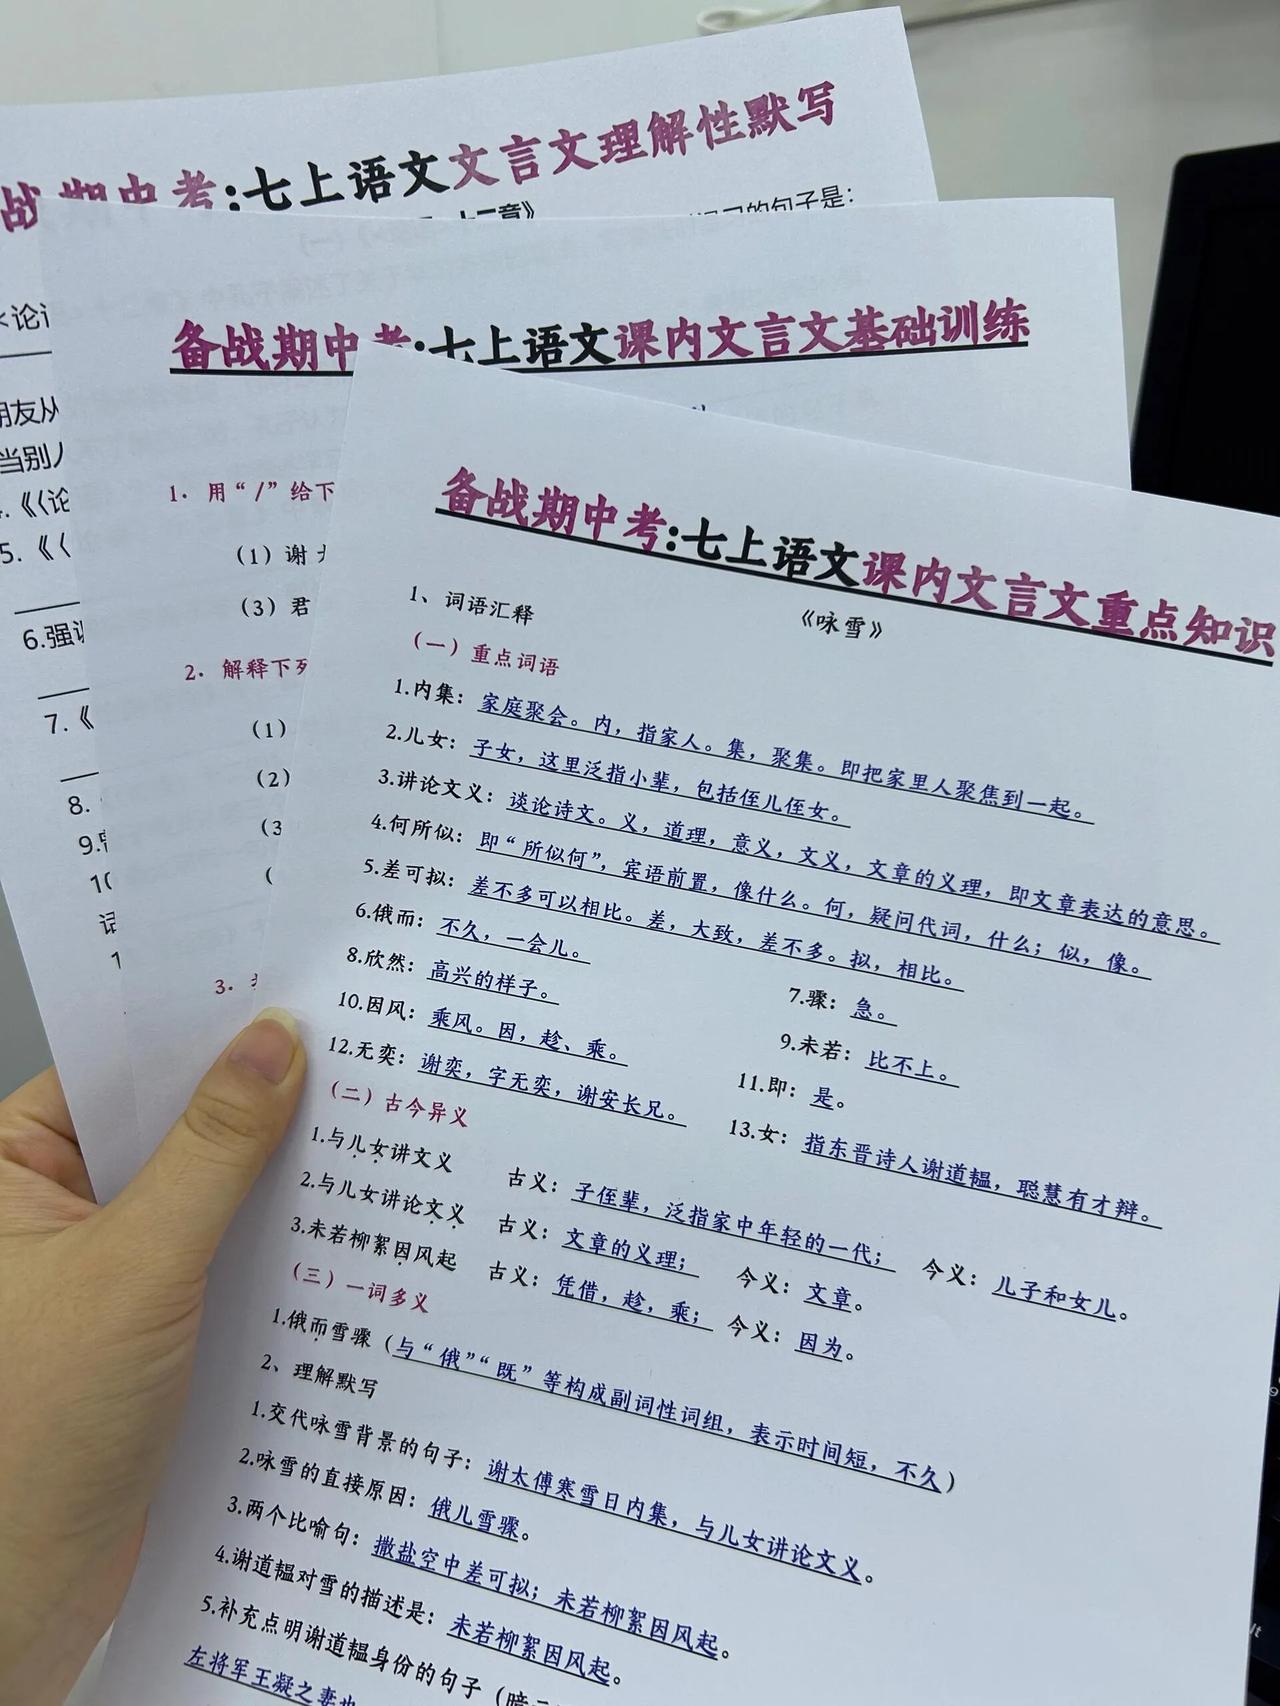 备战期中考:七上语文文言文理解性默写
十二章》
的句子是:
《论语
朋友从
当别人
4.《《论
5.《《
6.强调
7.《
8.
9.曾
10
1
备战期中考:七上语文课内文言文基础训练
1. 用“/”给下
(1)谢
(3)君
2. 解释下列
(1)
(2)
(3
(
3.
备战期中考:七上语文课内文言文重点知识
《咏雪》
1、词语汇释
(一)重点词语
1.内集:家庭聚会。内,指家人。集,聚集。即把家里人聚焦到一起。
2.儿女:子女,这里泛指小辈,包括侄儿侄女。
3.讲论文义:谈论诗文。义,道理,意义,文义,文章的义理,即文章表达的意思。
4.何所似:即“所似何”,宾语前置,像什么。何,疑问代词,什么;似,像。
5.差可拟:差不多可以相比。差,大致,差不多。拟,相比。
6.俄而:不久,一会儿。 7.骤:急。
8.欣然:高兴的样子。 9.未若:比不上。
10.因风:乘风。因,趁、乘。 11.即:是。
12.无奕:谢奕,字无奕,谢安长兄。 13.女:指东晋诗人谢道韫,聪慧有才辩。
(二)古今异义
1.与儿女讲文义 古义:子侄辈,泛指家中年轻的一代; 今义:儿子和女儿。
2.与儿女讲论文义 古义:文章的义理; 今义:文章。
3.未若柳絮因风起 古义:凭借,趁,乘; 今义:因为。
(三)一词多义
1.俄而雪骤(与“俄”“既”等构成副词性词组,表示时间短,不久)
2、理解默写
1.交代咏雪背景的句子:谢太傅寒雪日内集,与儿女讲论文义。
2.咏雪的直接原因:俄儿雪骤。
3.两个比喻句:撒盐空中差可拟;未若柳絮因风起。
4.谢道韫对雪的描述是:未若柳絮因风起。
5.补充点明谢道韫身份的句子(暗
左将军王凝之妻也